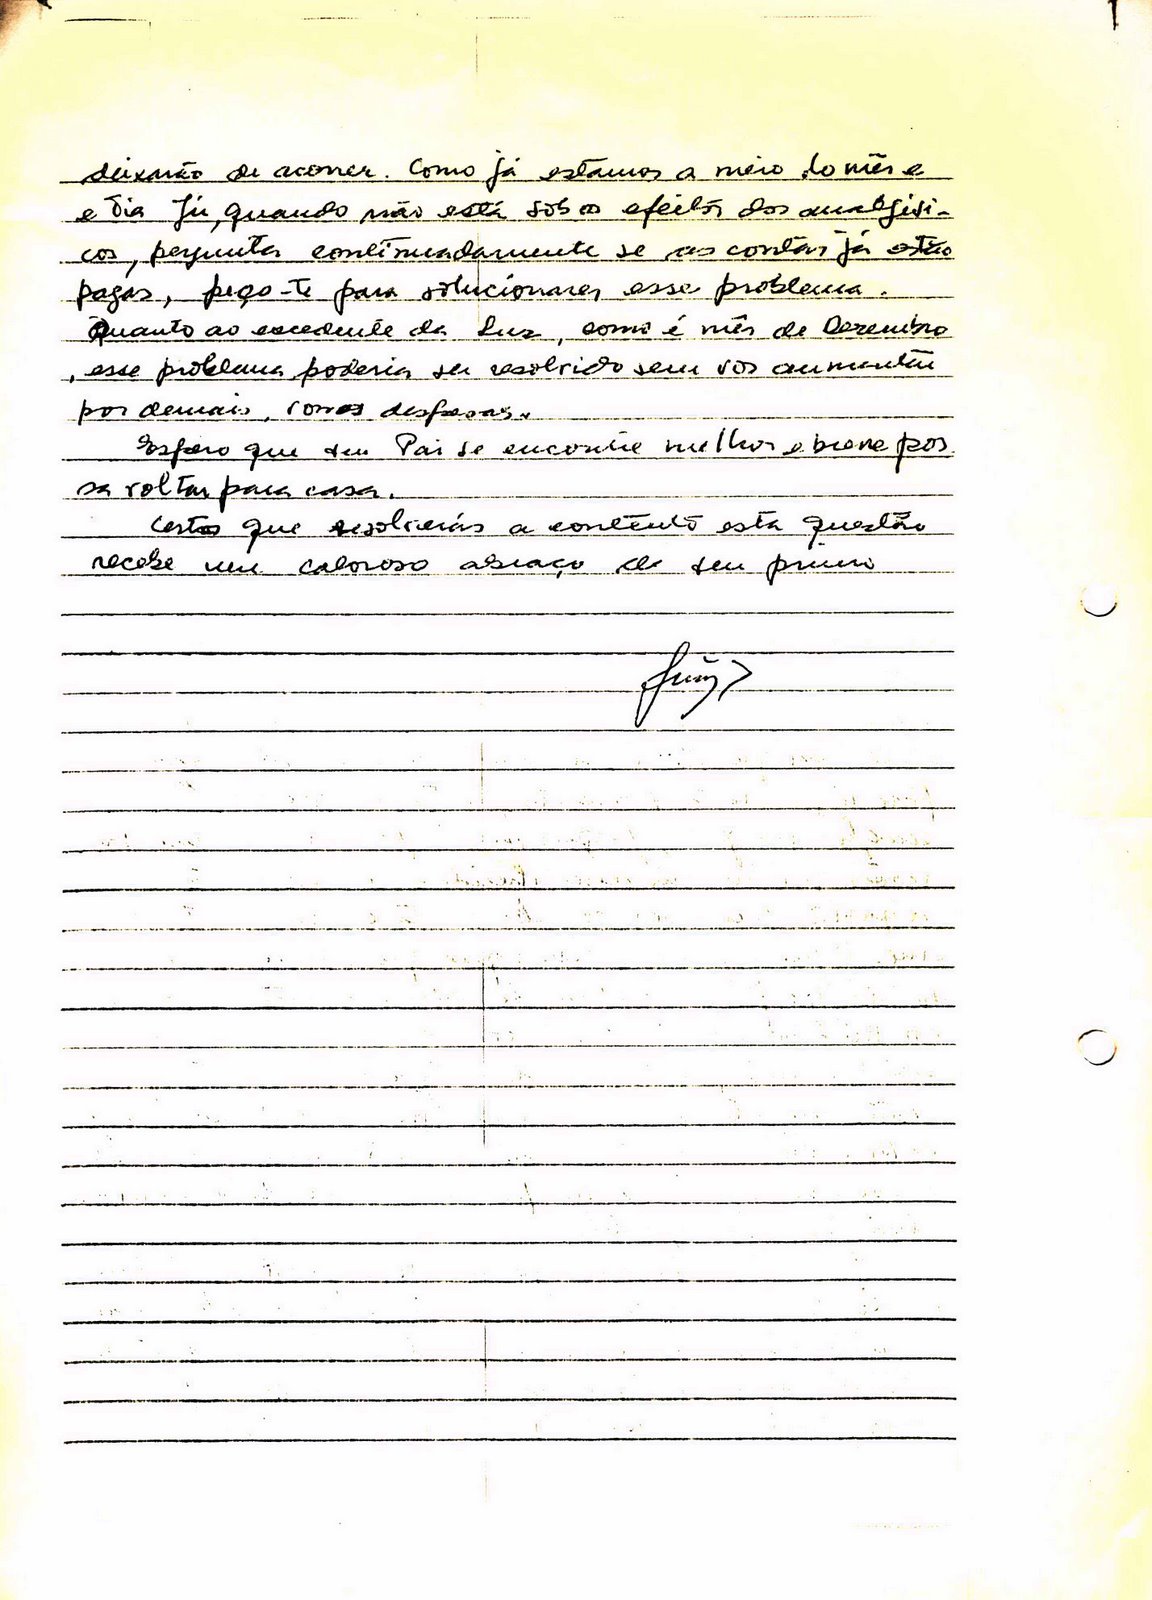 deixarão de acorrer. Como já estamos a meio do mês e
e Tia Jú, quando não está sob os efeitos dos analgési-
cos, pergunta continuadamente se as contas já estão
pagas, peço-te para solucionares esse problema.
Quanto ao excedente da Luz, como é mês de Dezembro
, esse problema poderia ser resolvido sem vos aumentar
por demais, vossas despesas.
Espero que seu Pai se encontre melhor e breve pos-
sa voltar para casa.
Certos que resolverás a contento esta questão
recebe um caloroso abraço de seu primo